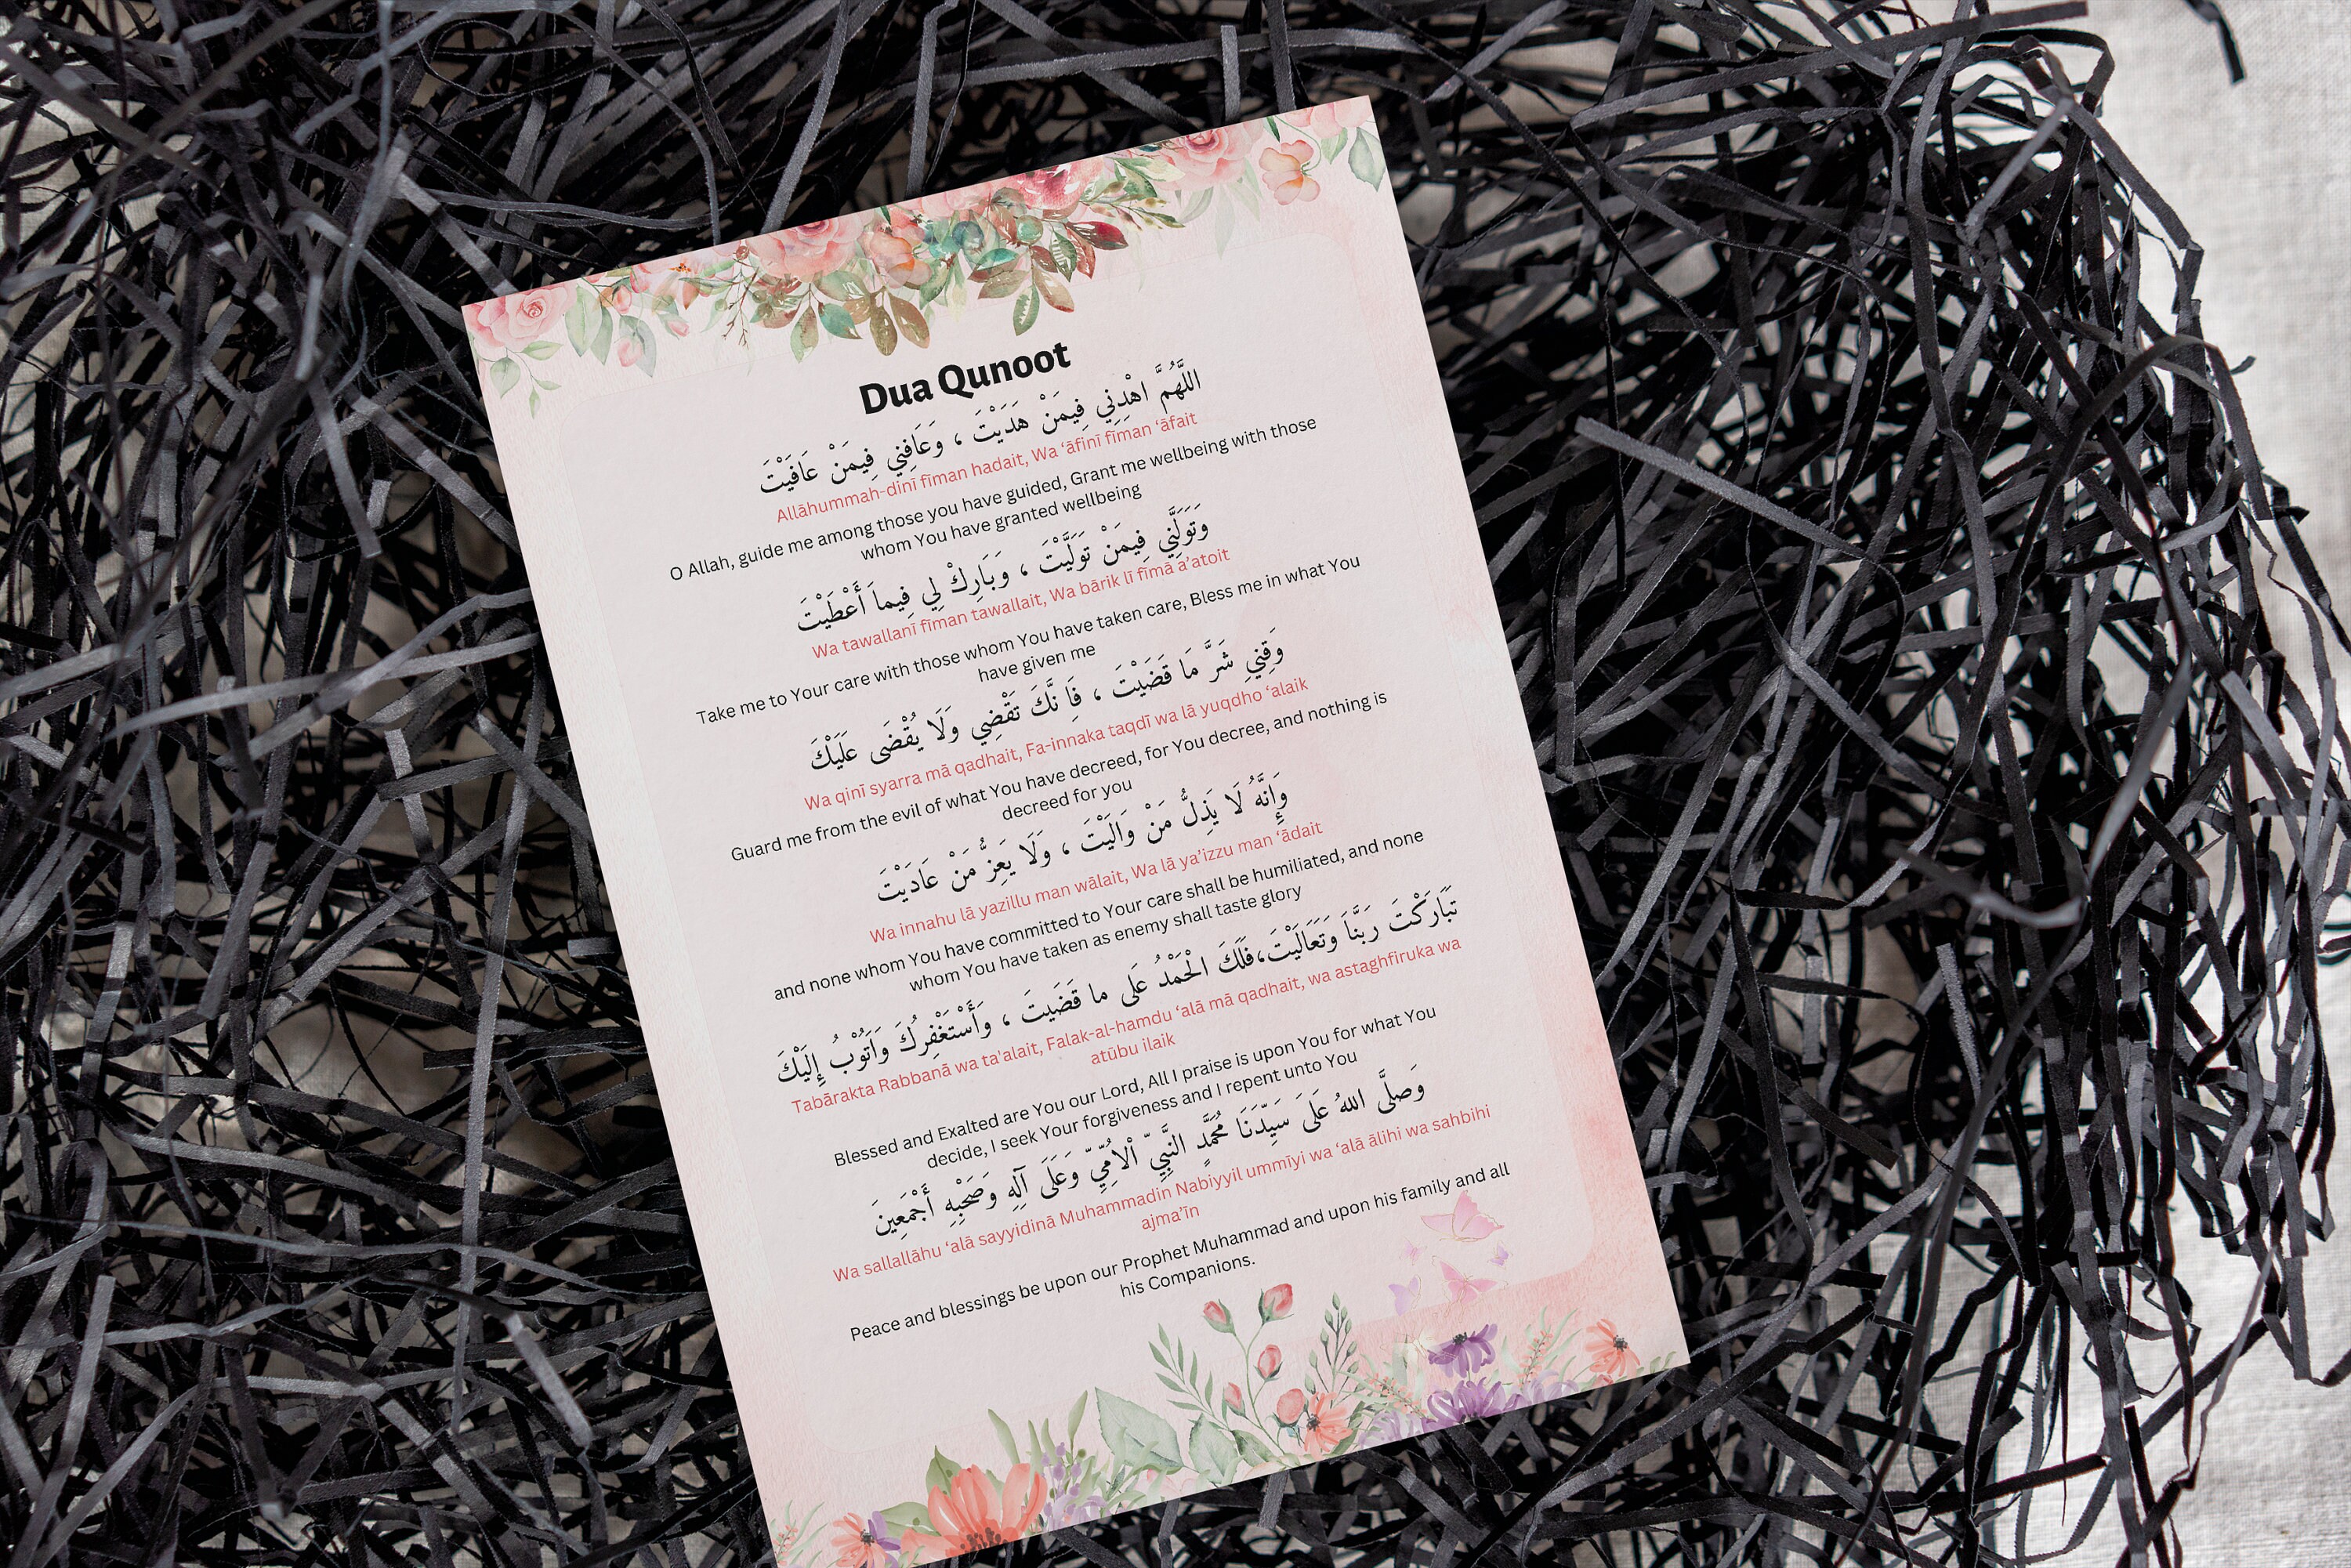 Dua Qunoot
اللَّهُمَّ اهْدِنِي فِيمَنْ هَدَيْتَ ، وَعَافِنِي فِيمَنْ عَافَيْتَ
Allāhummah-dinī fīman hadait, Wa ‘āfinī fīman ‘āfait
O Allah, guide me among those you have guided, Grant me wellbeing with those
whom You have granted wellbeing
وَتَوَلَّنِي فِيمَنْ تَوَلَّيْتَ ، وَبَارِكْ لِي فِيمَا أَعْطَيْتَ
Wa tawallanī fīman tawallait, Wa bārik lī fīmā a’atoit
Take me to Your care with those whom You have taken care, Bless me in what You
have given me
وَقِنِي شَرَّ مَا قَضَيْتَ ، فَا نَّكَ تَقْضِي وَلَا يُقْضَى عَلَيْكَ
Wa qinī syarra mā qadhait, Fa-innaka taqdī wa lā yuqdho ‘alaik
Guard me from the evil of what You have decreed, for You decree, and nothing is
decreed for you
وَإِنَّهُ لَا يَذِلُّ مَنْ وَالَيْتَ ، وَلَا يَعِزُّ مَنْ عَادَيْتَ
Wa innahu lā yazillu man wālait, Wa lā ya’izzu man ‘ādait
and none whom You have committed to Your care shall be humiliated, and none
whom You have taken as enemy shall taste glory
تَبَارَكْتَ رَبَّنَا وَتَعَالَيْتَ،فَلَكَ الْحَمْدُ عَلَى ما قَضَيْتَ ، وَأَسْتَغْفِرُكَ وَاَتُوْبُ إِلَيْكَ
Tabārakta Rabbanā wa ta'alait, Falak-al-hamdu ‘alā mā qadhait, wa astaghfiruka wa
atūbu ilaik
Blessed and Exalted are You our Lord, All I praise is upon You for what You
decide, I seek Your forgiveness and I repent unto You
وَصَلَّى اللهُ عَلَى سَيِّدَنَا مُحَمَّدٍ النَّبِيِّ الْاُمِّيِّ وَعَلَى آلِهِ وَصَحْبِهِ أَجْمَعِينَ
Wa sallallāhu ‘alā sayyidinā Muhammadin Nabiyyil ummīyi wa ‘alā ālihi wa sahbihi
ajma’īn
Peace and blessings be upon our Prophet Muhammad and upon his family and all
his Companions.